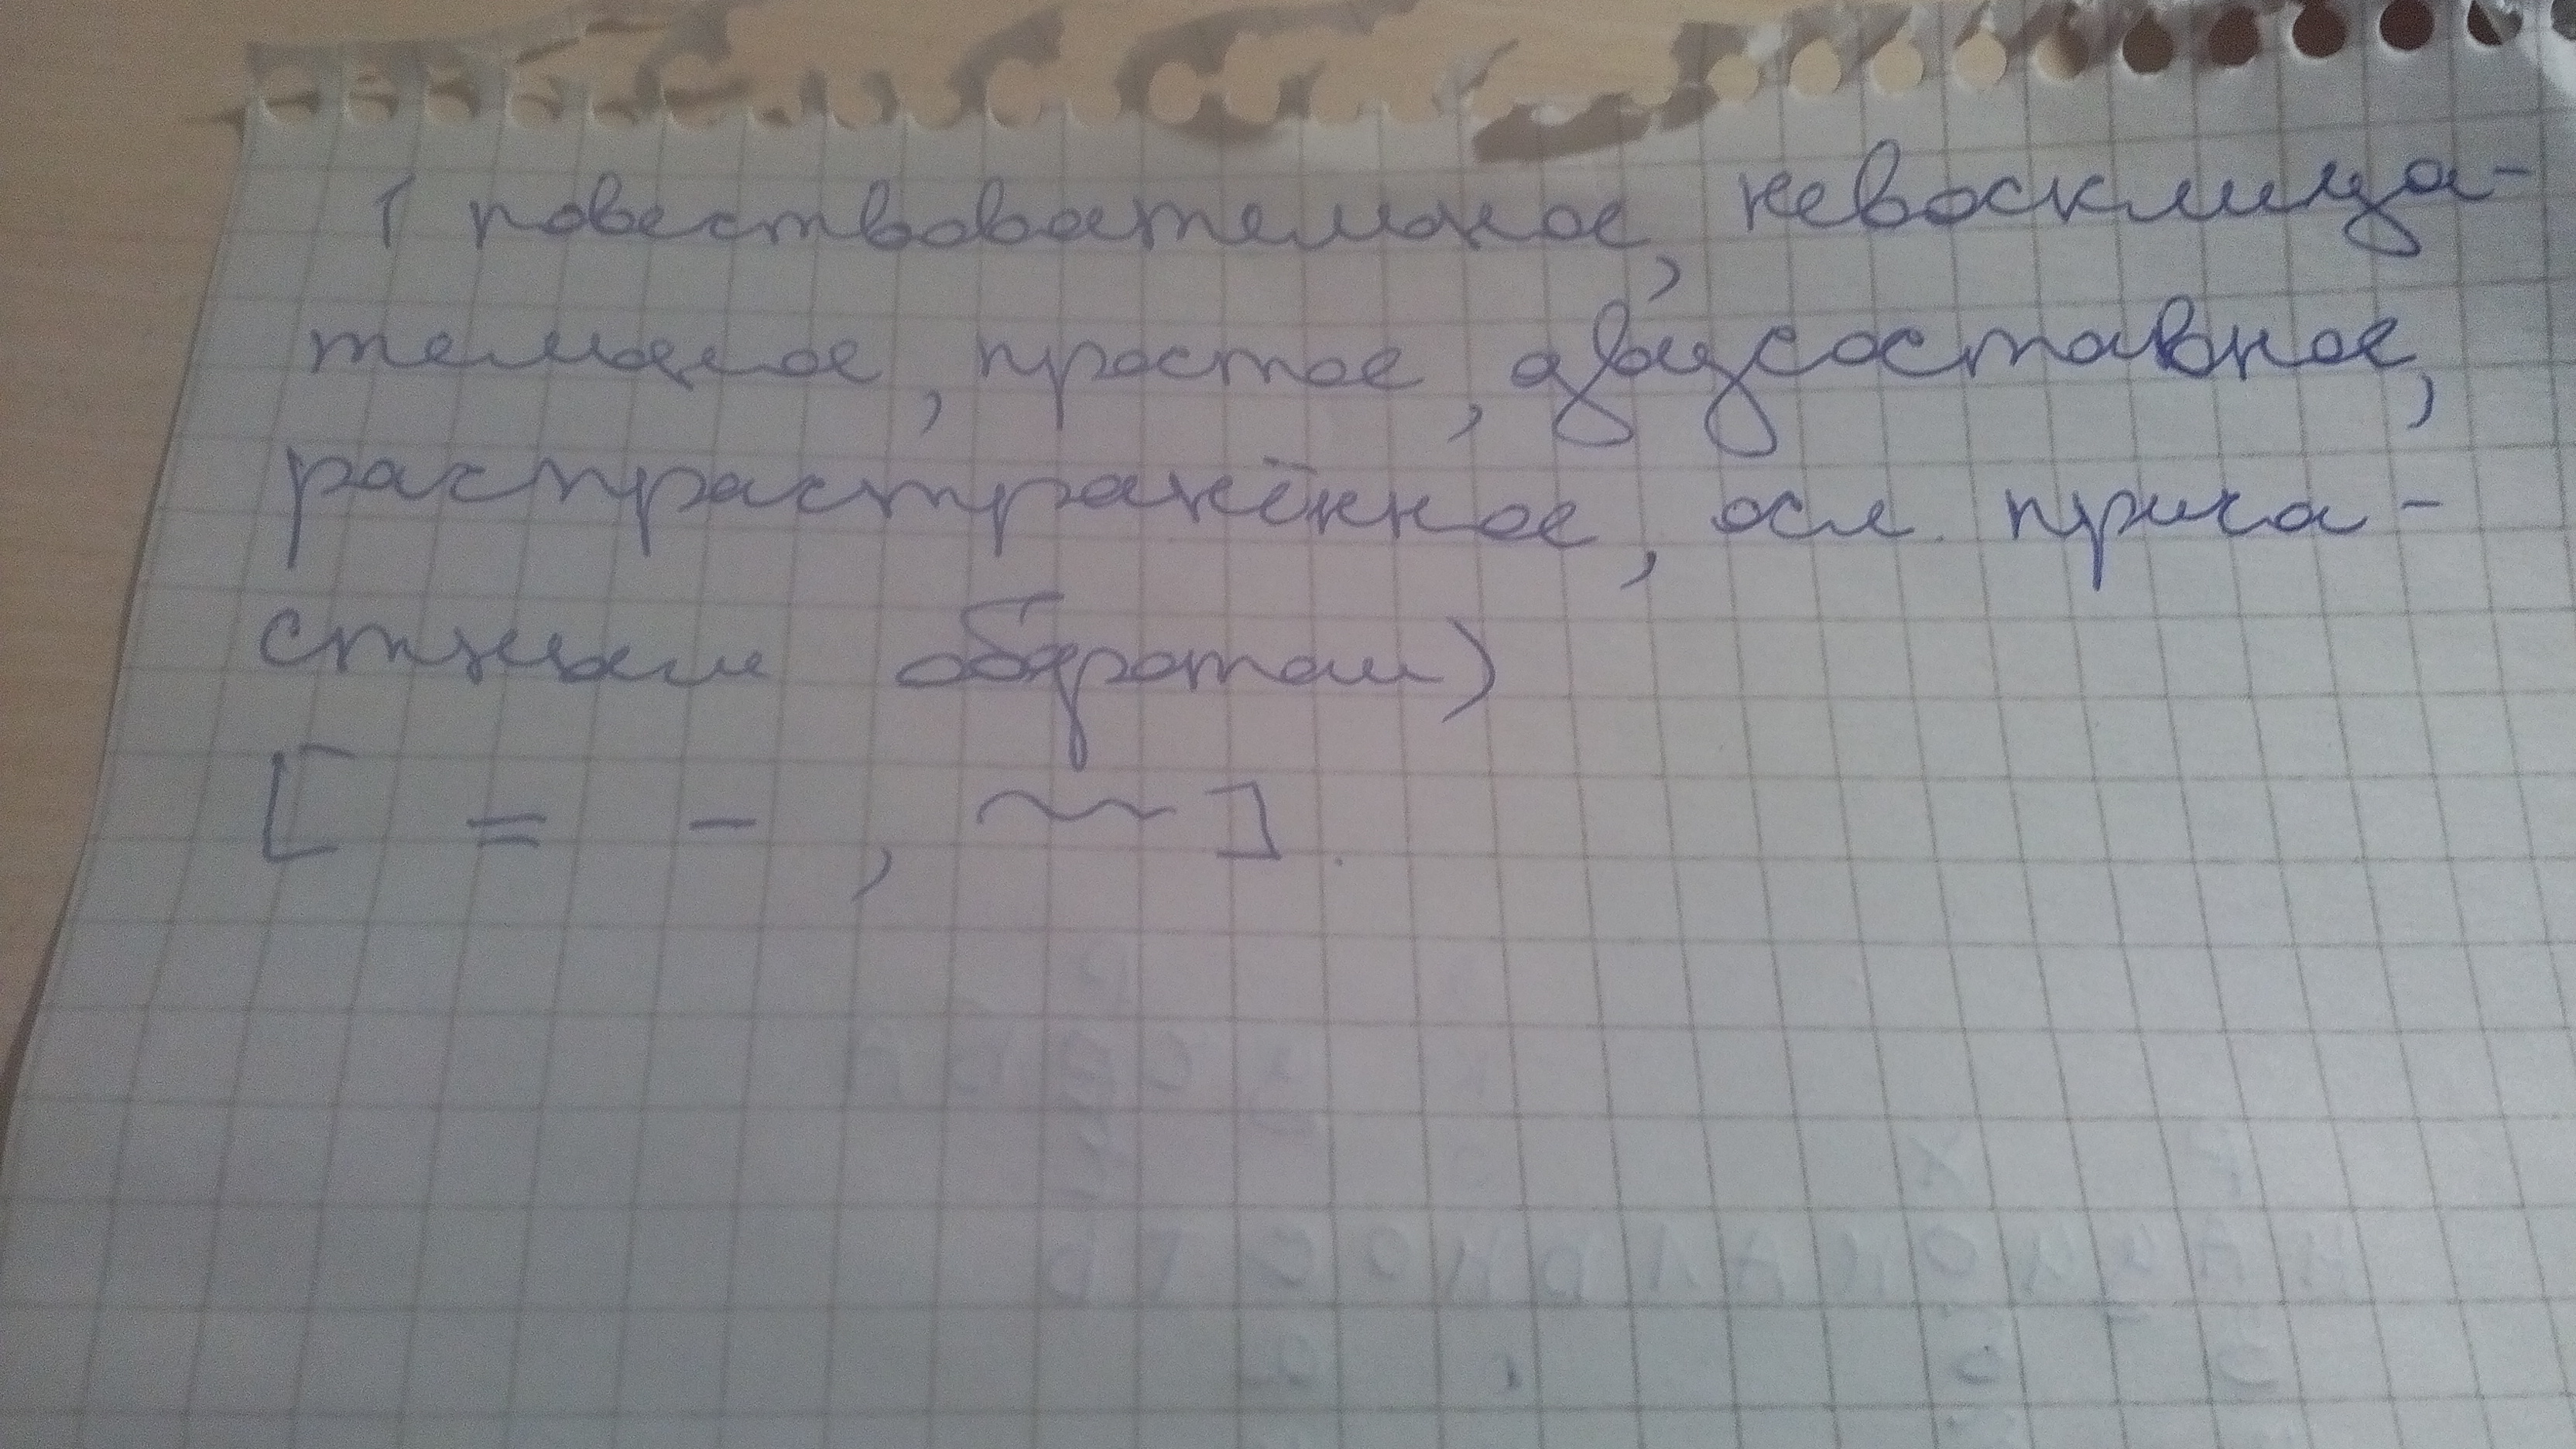 ( повествовательное, невосклица-
тельное, простое, двусоставное,
распрастранённое, осл. прича-
стным оборотом)
[ = - , ~~~ ].